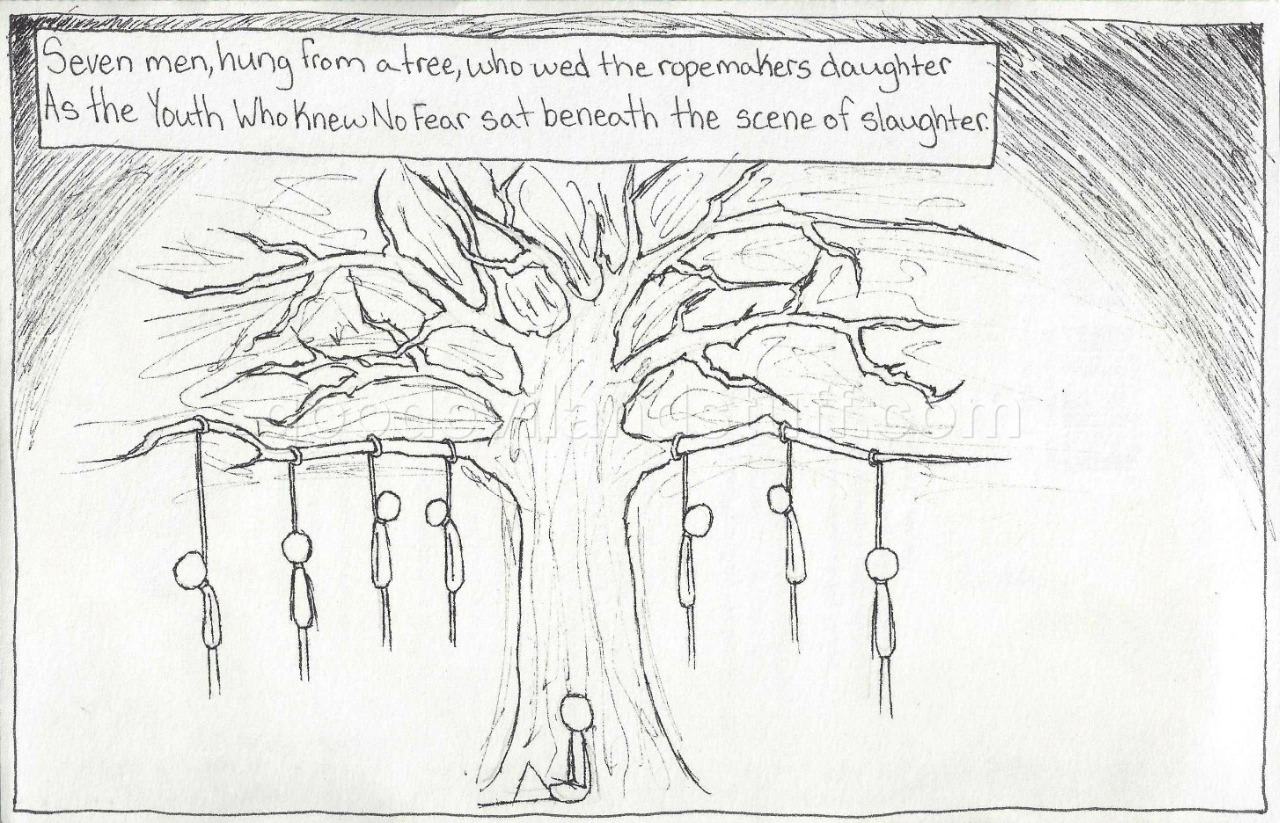 Seven men, hung from a tree, who wed the ropemakers daughter
As the Youth Who Knew No Fear sat beneath the scene of slaughter.